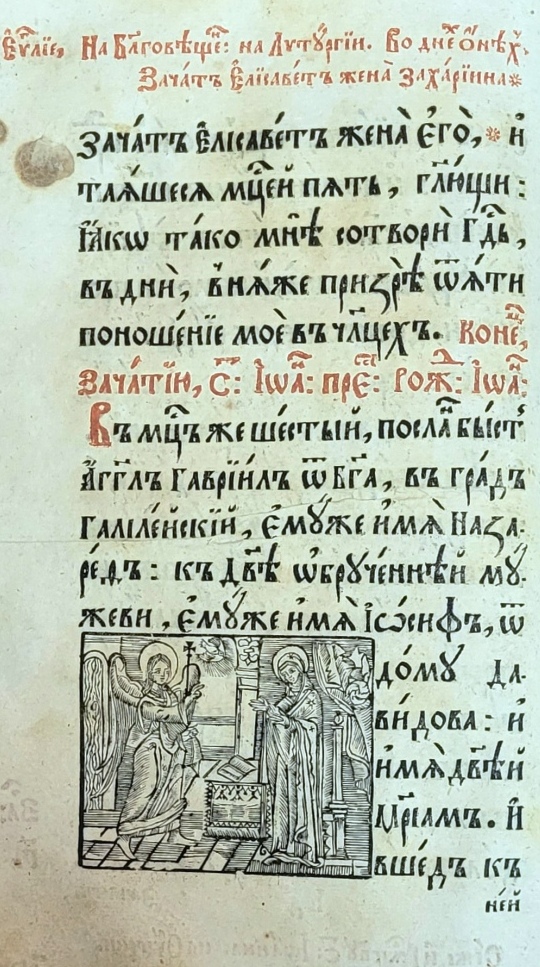 Еѵⷢ҇лїе, На Бл҃говѣщеⷩ҇: на Лѵтꙋргїи. Во дне́ ѻ҆нѣⷯ,
Зача́тъ Е҆лїсаве́тъ жена̀ Заха́рїина*
зача́тъ Е҆лїсаве́тъ жена̀ Е҆гѡ̀, * и҆
таѧ́шесѧ мцⷭ҇ей пѧть, гл҃ющи:
Ꙗ҆́кѡ та́ко мнѣ̀ сотворѝ Гдⷭ҇ь,
въ дни̑, в̾нѧ́же призрѣ̀ ѿѧ́ти
поноше́нїе моѐ въ чл҃цехъ. Коне́ⷰ҇,
зача́тїю, С: І҆ѡаⷩ҇: преⷣ: рожⷣ: І҆ѡаⷩ҇:
Въ мцⷭ҇ъ же шесты́й, по́сланъ бы́сть
А҆́гг҃лъ Гаврїи́лъ ѿ Бг҃а, въ гра́дъ
Галїле́йскїй, Е҆мꙋ́же и҆́мѧ Наза-
ре́ѳъ: къ Дв҃ѣ ѡ҆брꙋче́ннѣй мꙋ-
жеви, Е҆мꙋ́же и҆́мѧ І҆ѡ́сифъ, ѿ
до́мꙋ Да-
ви́дова: и҆
и҆́мѧ дв҃ѣй
Мр҃їамъ. И҆
вше́дъ къ
ней